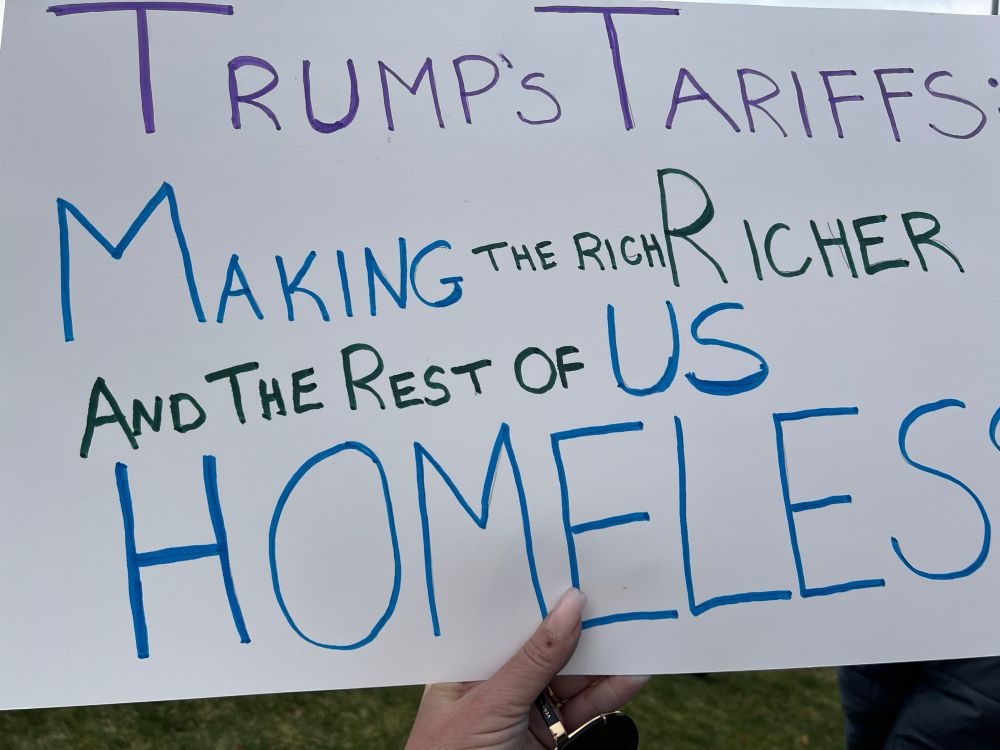 TRUMP'S TARIFFS:
MAKING THE RICH RICHER
AND THE REST OF US
HOMELESS